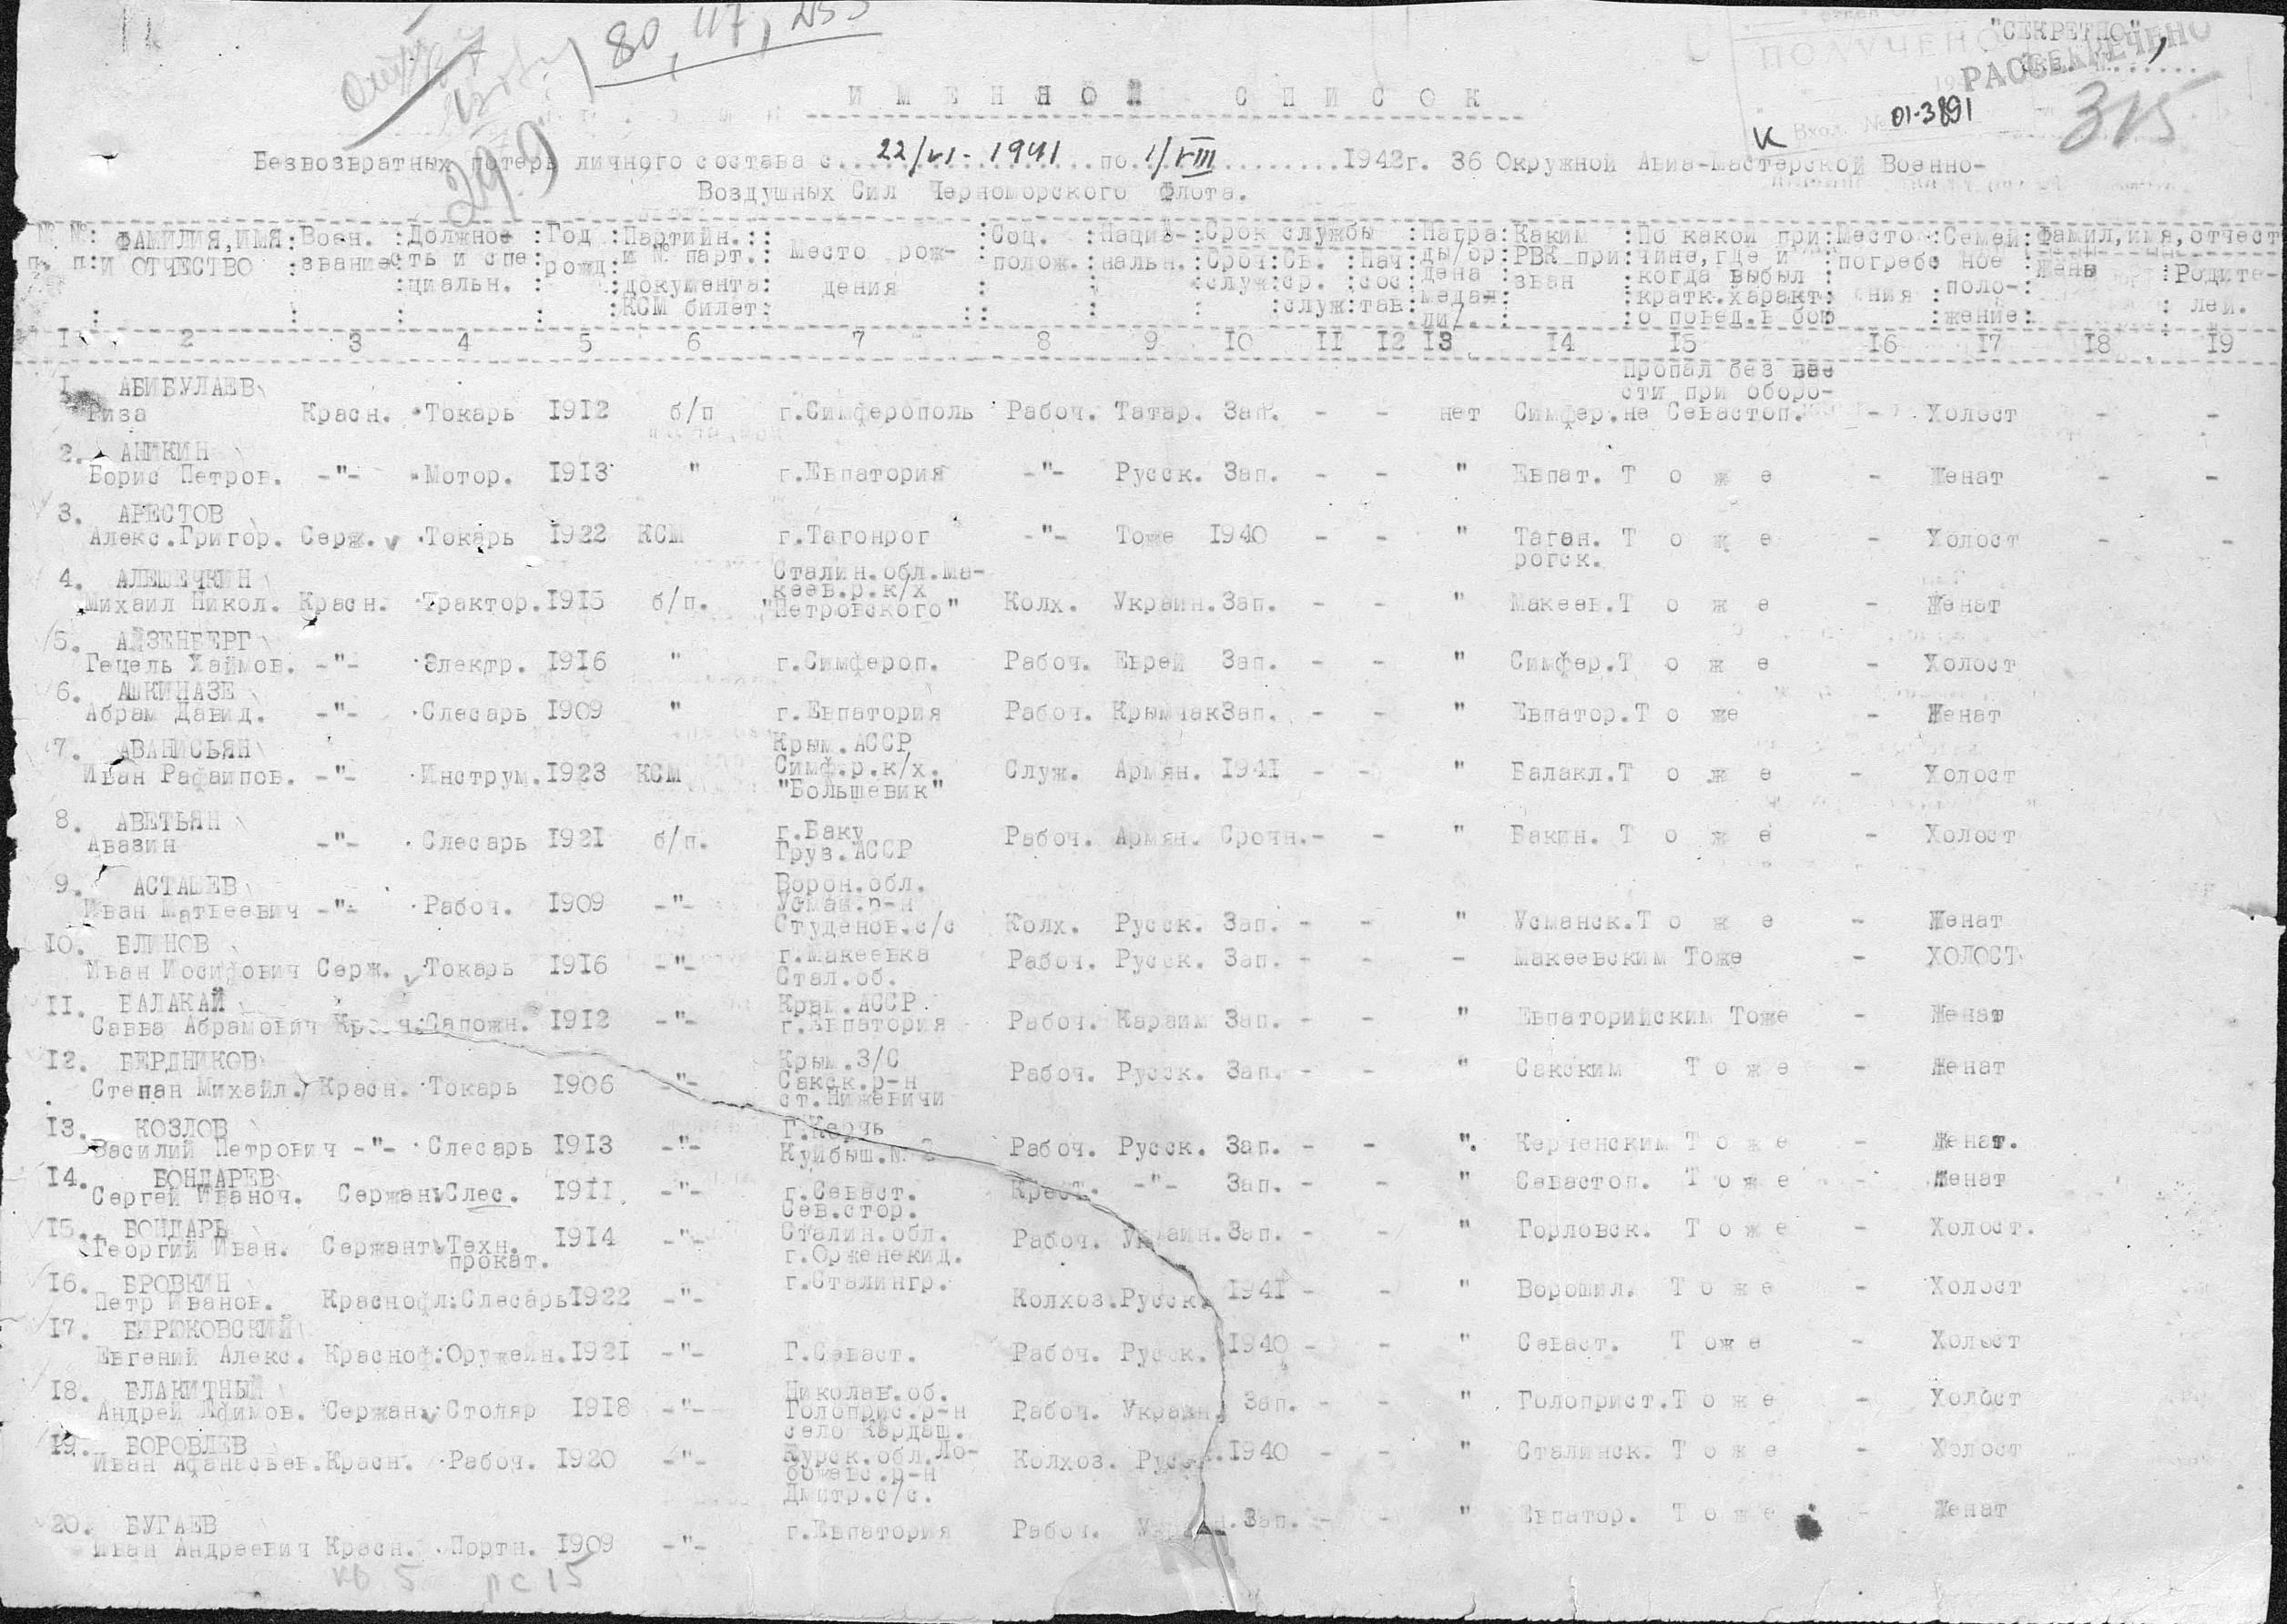 80, 117, 253
"СЕКРЕТНО"
ПОЛУЧЕНО
РАССЕКРЕЧЕНО
Вход. № 01-3891
315
29.9
ИМЕННОЙ СПИСОК
Безвозвратных потерь личного состава с 22/VI-1941 по 1/VIII 1942г. 36 Окружной Авиа-мастерской Военно-
Воздушных Сил Черноморского Флота.
№ № п. п: ФАМИЛИЯ,ИМЯ И ОТЧЕСТВО : Воен. звание : Должность и специальн. : Год рожд : Партийн. и № парт. документа КСМ билет : Место рождения : Соц. полож. : Нацио-нальн. : Срок службы Сроч служ : Св. ср. служ : Нач сос тав : Награды/ордена медали/. : Каким РВК призван : По какой причине,где и когда выбыл кратк.характ о повед.в бою : Место погребения : Семейное положение : Фамил,имя,отчест Жены : Родителей.
1 2 3 4 5 6 7 8 9 10 11 12 13 14 15 16 17 18 19
1. АБИБУЛАЕВ Риза Красн. Токарь 1912 б/п г.Симферополь Рабоч. Татар. Зап. - - нет Симфер. Пропал без вести при обороне Севастоп. - Холост - -
2. АНИКИН Борис Петров. -"- Мотор. 1913 " г.Евпатория -"- Русск. Зап. - - " Евпат. Т о ж е - Женат - -
3. АРЕСТОВ Алекс.Григор. Серж. Токарь 1922 КСМ г.Тагонрог -"- Тоже 1940 - - " Таган.рогск. Т о ж е - Холост - -
4. АЛЕШЕЧКИН Михаил Никол. Красн. Трактор. 1915 б/п. Сталин.обл.Ма-кеев.р.к/х "Петровского" Колх. Украин. Зап. - - " Макеев. Т о ж е - Женат
5. АЙЗЕНБЕРГ Гецель Хаймов. -"- Электр. 1916 " г.Симфероп. Рабоч. Еврей Зап. - - " Симфер. Т о ж е - Холост
6. АШКИНАЗЕ Абрам Давид. -"- Слесарь 1909 " г.Евпатория Рабоч. Крымчак Зап. - - " Евпатор. Т о же - Женат
7. АВАНИСЬЯН Иван Рафаипов. -"- Инструм. 1923 КСМ Крым.АССР Симф.р.к/х. "Большевик" Служ. Армян. 1941 - - " Балакл. Т о ж е - Холост
8. АВЕТЬЯН Авазин -"- Слесарь 1921 б/п. г.Баку Груз.АССР Рабоч. Армян. Срочн. - - " Бакин. Т о ж е - Холост
9. АСТАШЕВ Иван Матвеевич -"- Рабоч. 1909 -"- Ворон.обл. Усман.р-н Студенов.с/с Колх. Русск. Зап. - - " Усманск. Т о ж е - Женат
10. БЛИНОВ Иван Иосифович Серж. Токарь 1916 -"- г.Макеевка Стал.об. Рабоч. Русск. Зап. - - - Макеевским Тоже - ХОЛОСТ
11. БАЛАКАЙ Савва Абрамович Сапожн. 1912 -"- Крым.АССР г.Евпатория Рабоч. Караим Зап. - - " Евпаторийским Тоже - Женат
12. БЕРДНИКОВ Степан Михайл. Красн. Токарь 1906 -"- Крым.З/С Сакск.р-н ст.Нижевичи Рабоч. Русск. Зап. - - " Сакским Т о ж е - Женат
13. КОЗЛОВ Василий Петрович -"- Слесарь 1913 -"- Г.Керчь Куйбыш.№ Рабоч. Русск. Зап. - - ". Керченским Т о ж е - Женат.
14. БОНДАРЕВ Сергей Иваноч. Сержан Слес. 1911 -"- г.Севаст. Сев.стор. Крест. -"- Зап. - - " Севастоп. Т о ж е - Женат
15. БОНДАРЬ Георгий Иван. Сержант Техн. прокат. 1914 -"- Сталин.обл. г.Орженекид. Рабоч. Украин. Зап. - - " Горловск. Т о ж е - Холост.
16. БРОВКИН Петр Иванов. Краснофл: Слесарь 1922 -"- г.Сталингр. Колхоз. Русск. 1941 - - " Ворошил. Т о ж е - Холост
17. БИРЮКОВСКИЙ Евгений Алекс. Красноф: Оружейн. 1921 -"- Г.Севаст. Рабоч. Русск. 1940 - - " Севаст. Т о ж е - Холост
18. БЛАКИТНЫЙ Андрей Ефимов. Сержан Столяр 1918 -"- Николав.об. Голоприс.р-н село Кардаш. Рабоч. Украин. Зап. - - " Голоприст. Т о ж е - Холост
19. БОРОВЛЕВ Иван Афанасьев. Красн. Рабоч. 1920 -"- Курск.обл.Ло-божевс.р-н Дмитр.с/с. Колхоз. Русск. 1940 - - " Сталинск. Т о ж е - Холост
20. БУГАЕВ Иван Андреевич Красн. Портн. 1909 -"- г.Евпатория Рабоч. Зап. - - " Евпатор. Т о ж е - Женат
КФ 5 РС 15